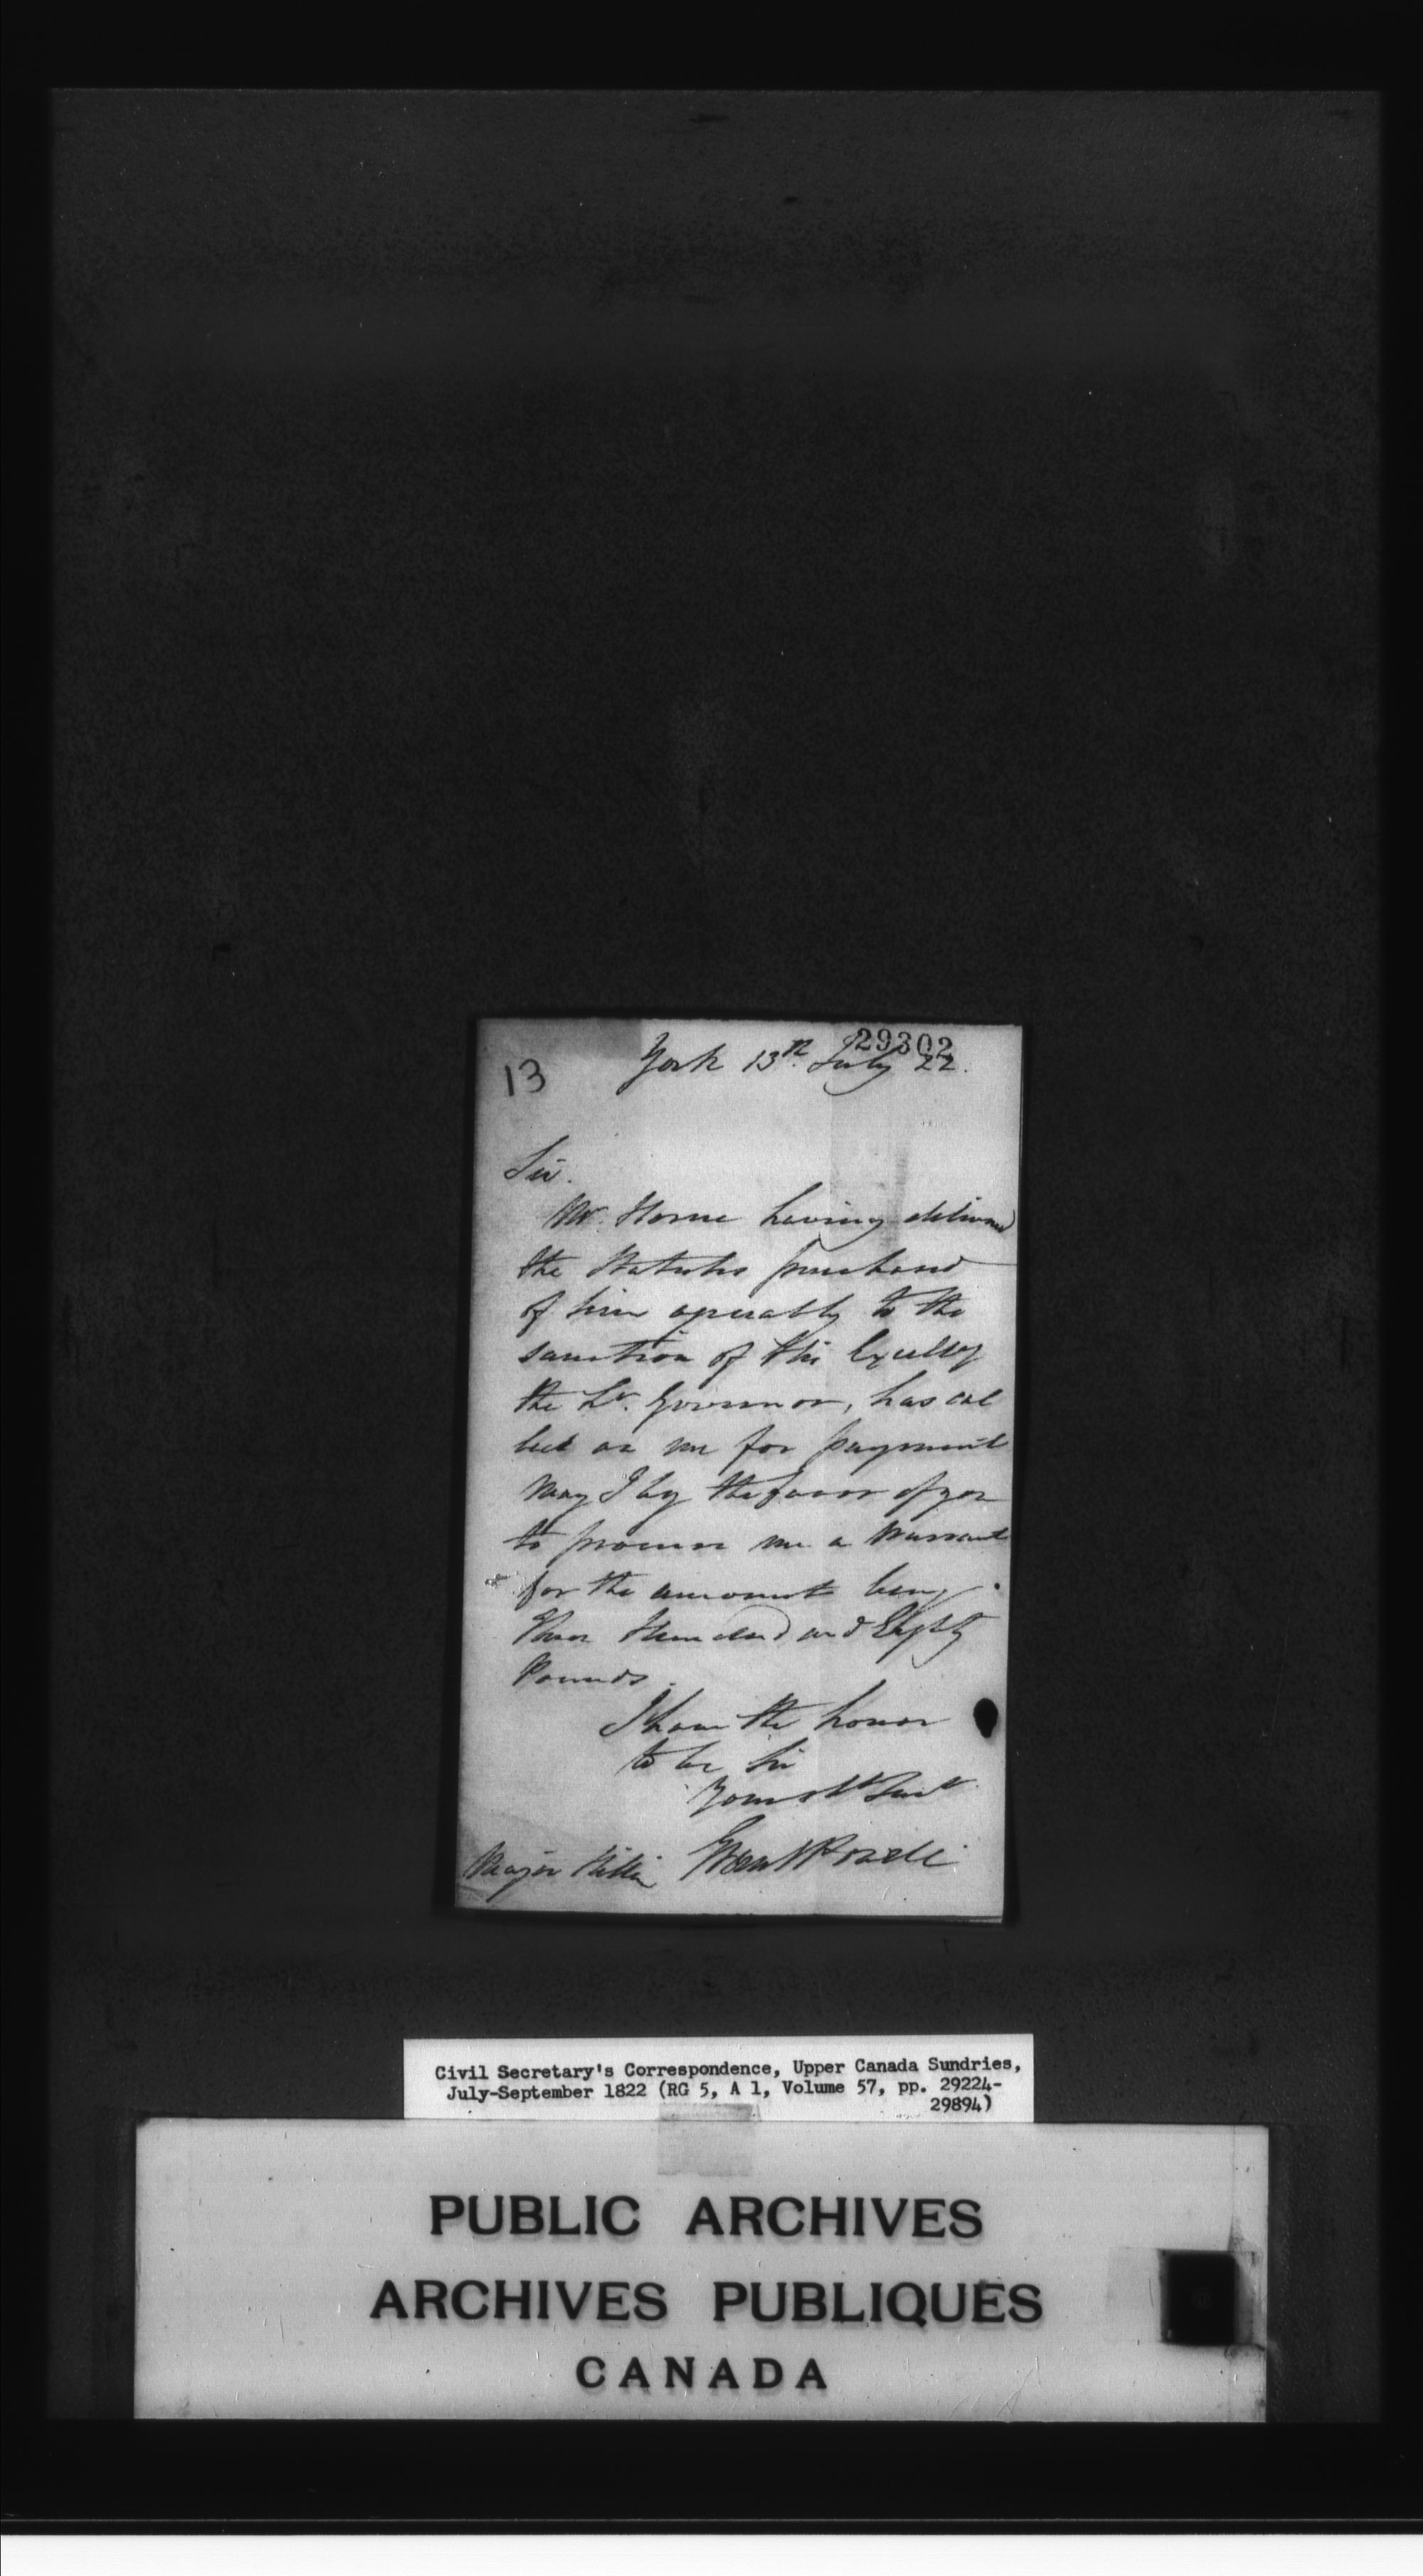 29302
13
York 13th July 22.
Sir.
Mr. Horne having delivered
the Statutes purchased
of him agreeably to the
sanction of His Excelley
the Lt. Governor, has cal
led on me for payment
May I beg the favor of you
to procure me a Warrant
for the amount being
Three Hundred and Eighty
Pounds.
I have the honor
to be Sir
Your obt Servt
Grant Powell
Major Hillier
Civil Secretary's Correspondence, Upper Canada Sundries,
July-September 1822 (RG 5, A 1, Volume 57, pp. 29224-
29894)
PUBLIC ARCHIVES
ARCHIVES PUBLIQUES
CANADA